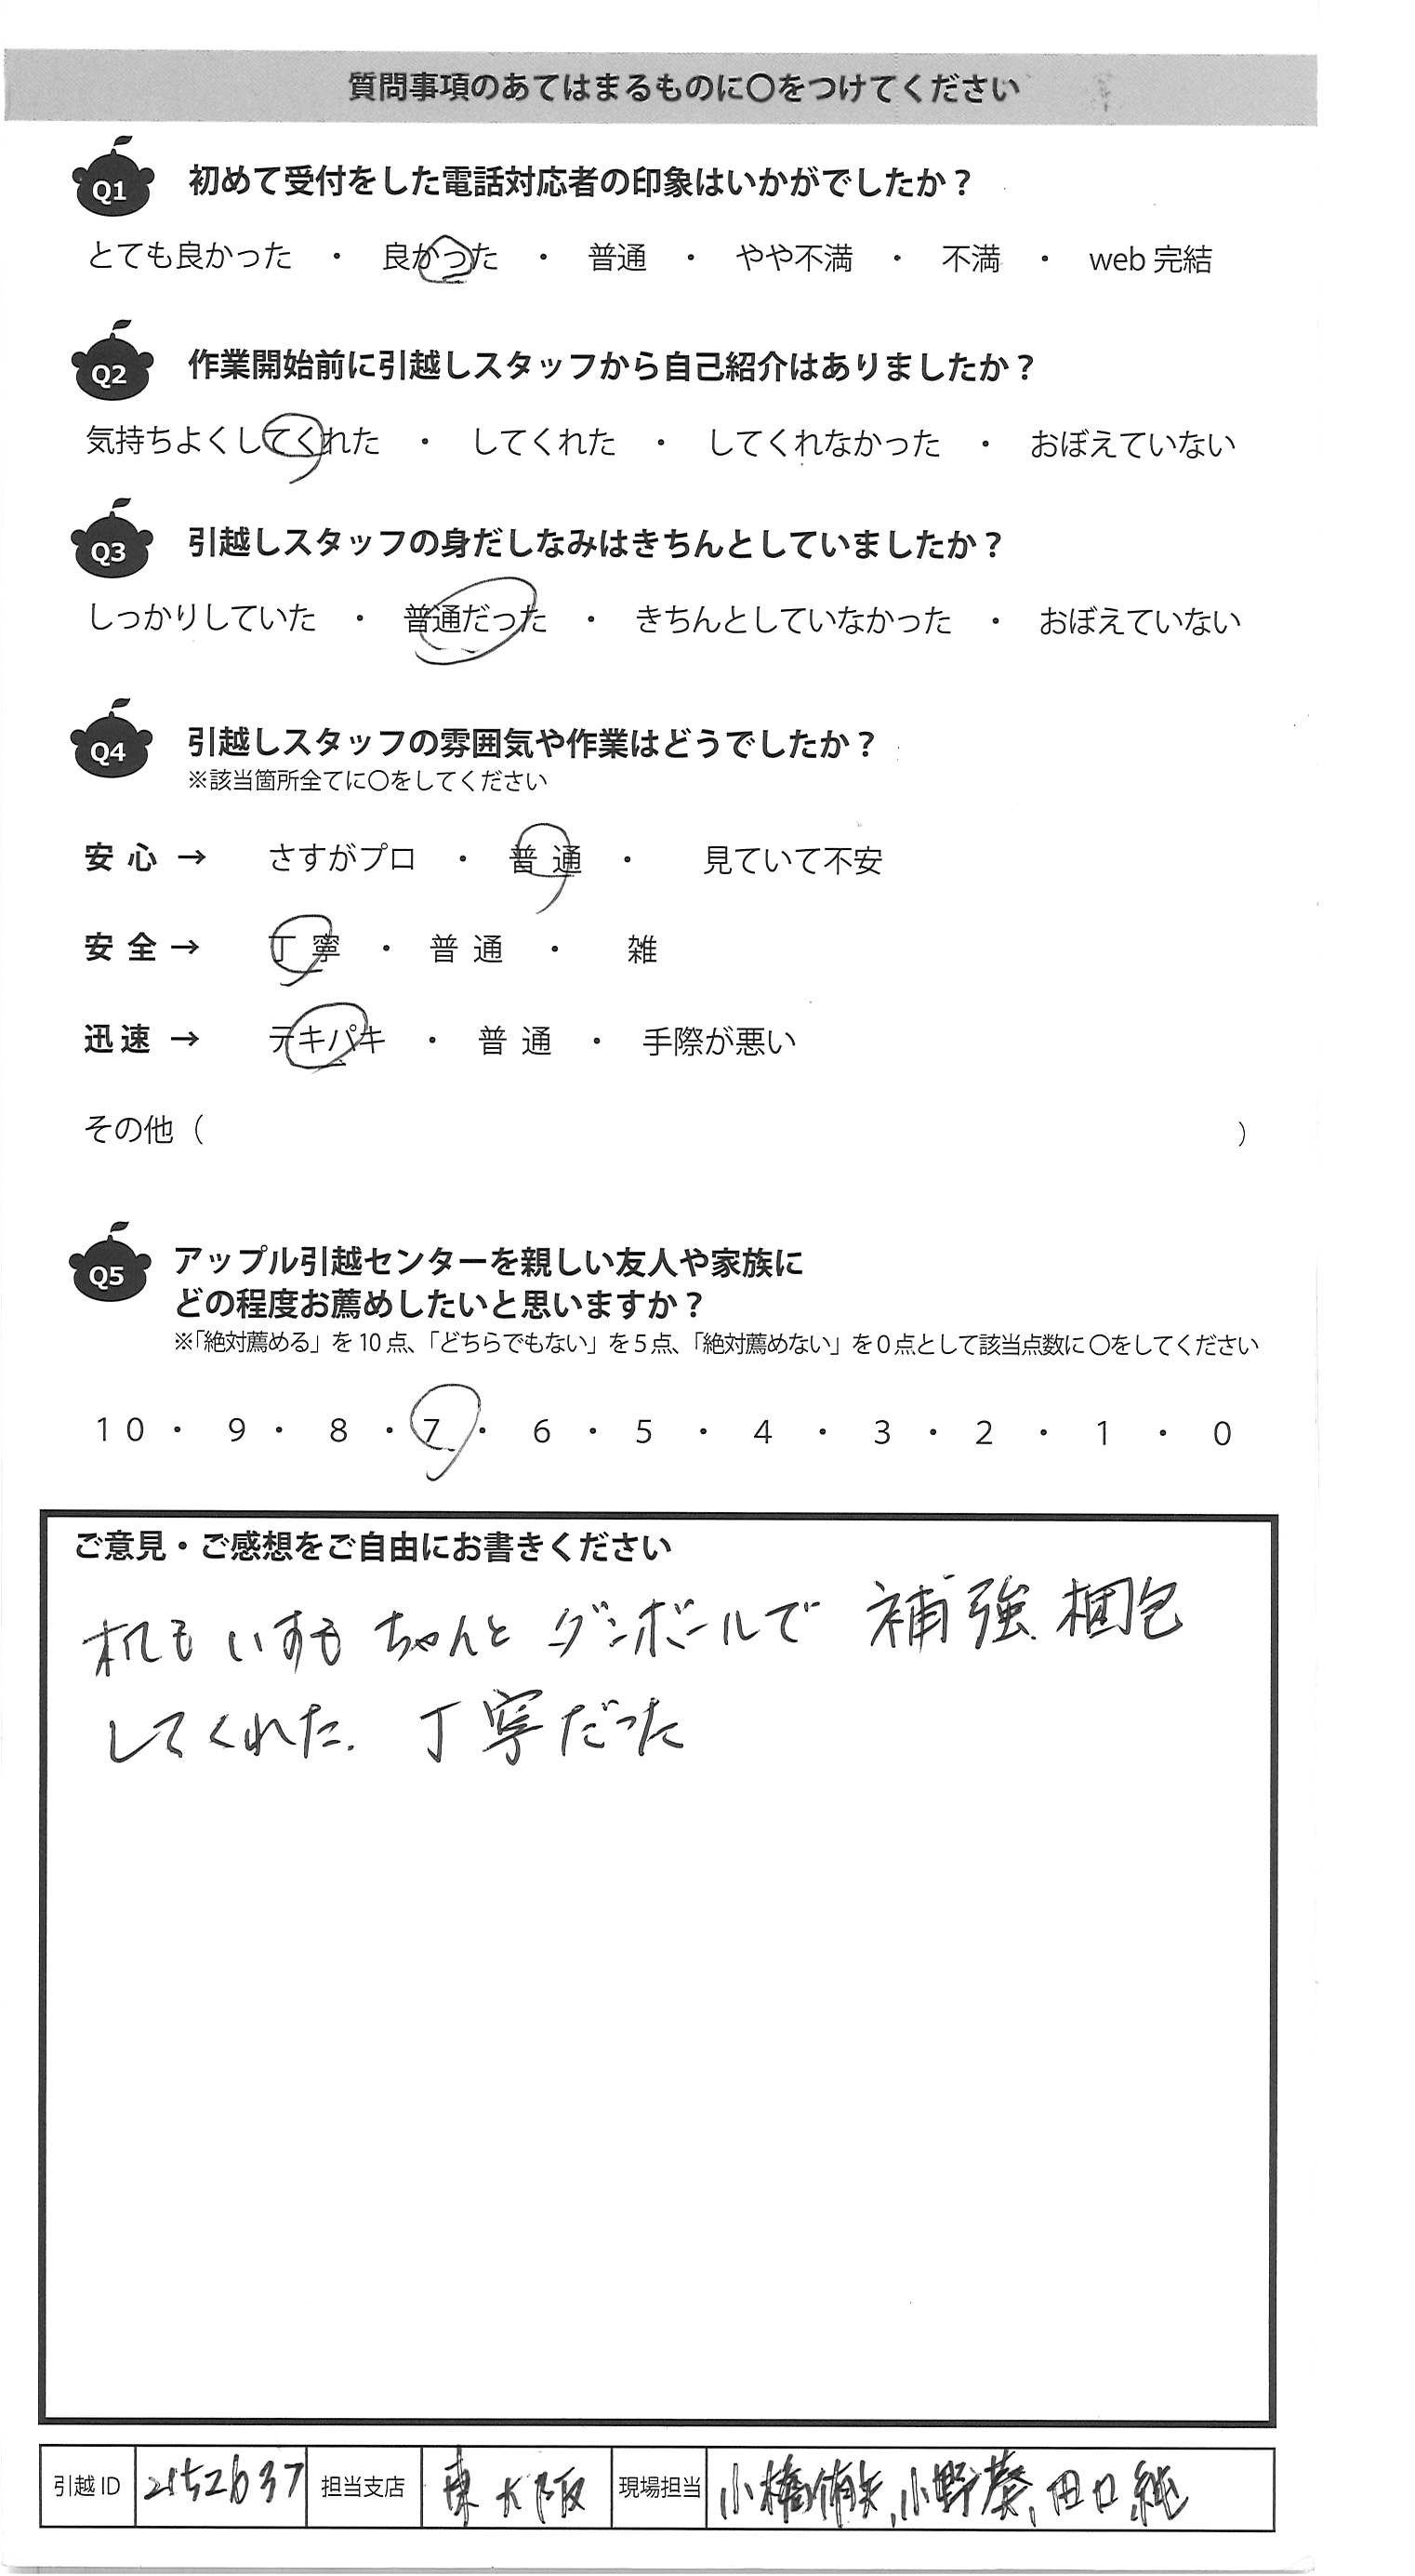 質問事項のあてはまるものに〇をつけてください
Q1 初めて受付をした電話対応者の印象はいかがでしたか？
とても良かった ・ 良かった ・ 普通 ・ やや不満 ・ 不満 ・ web 完結
Q2 作業開始前に引越しスタッフから自己紹介はありましたか？
気持ちよくしてくれた ・ してくれた ・ してくれなかった ・ おぼえていない
Q3 引越しスタッフの身だしなみはきちんとしていましたか？
しっかりしていた ・ 普通だった ・ きちんとしていなかった ・ おぼえていない
Q4 引越しスタッフの雰囲気や作業はどうでしたか？
※該当箇所全てに〇をしてください
安心 → さすがプロ ・ 普通 ・ 見ていて不安
安全 → 丁寧 ・ 普通 ・ 雑
迅速 → テキパキ ・ 普通 ・ 手際が悪い
その他（ ）
Q5 アップル引越センターを親しい友人や家族に
どの程度お薦めしたいと思いますか？
※「絶対薦める」を10点、「どちらでもない」を5点、「絶対薦めない」を0点として該当点数に〇をしてください
10 ・ 9 ・ 8 ・ 7 ・ 6 ・ 5 ・ 4 ・ 3 ・ 2 ・ 1 ・ 0
ご意見・ご感想をご自由にお書きください
机もいすも ちゃんと ダンボールで 補強 梱包
してくれた. 丁寧だった
引越ID 2152637 担当支店 東大阪 現場担当 小橋 小野葵、田口純